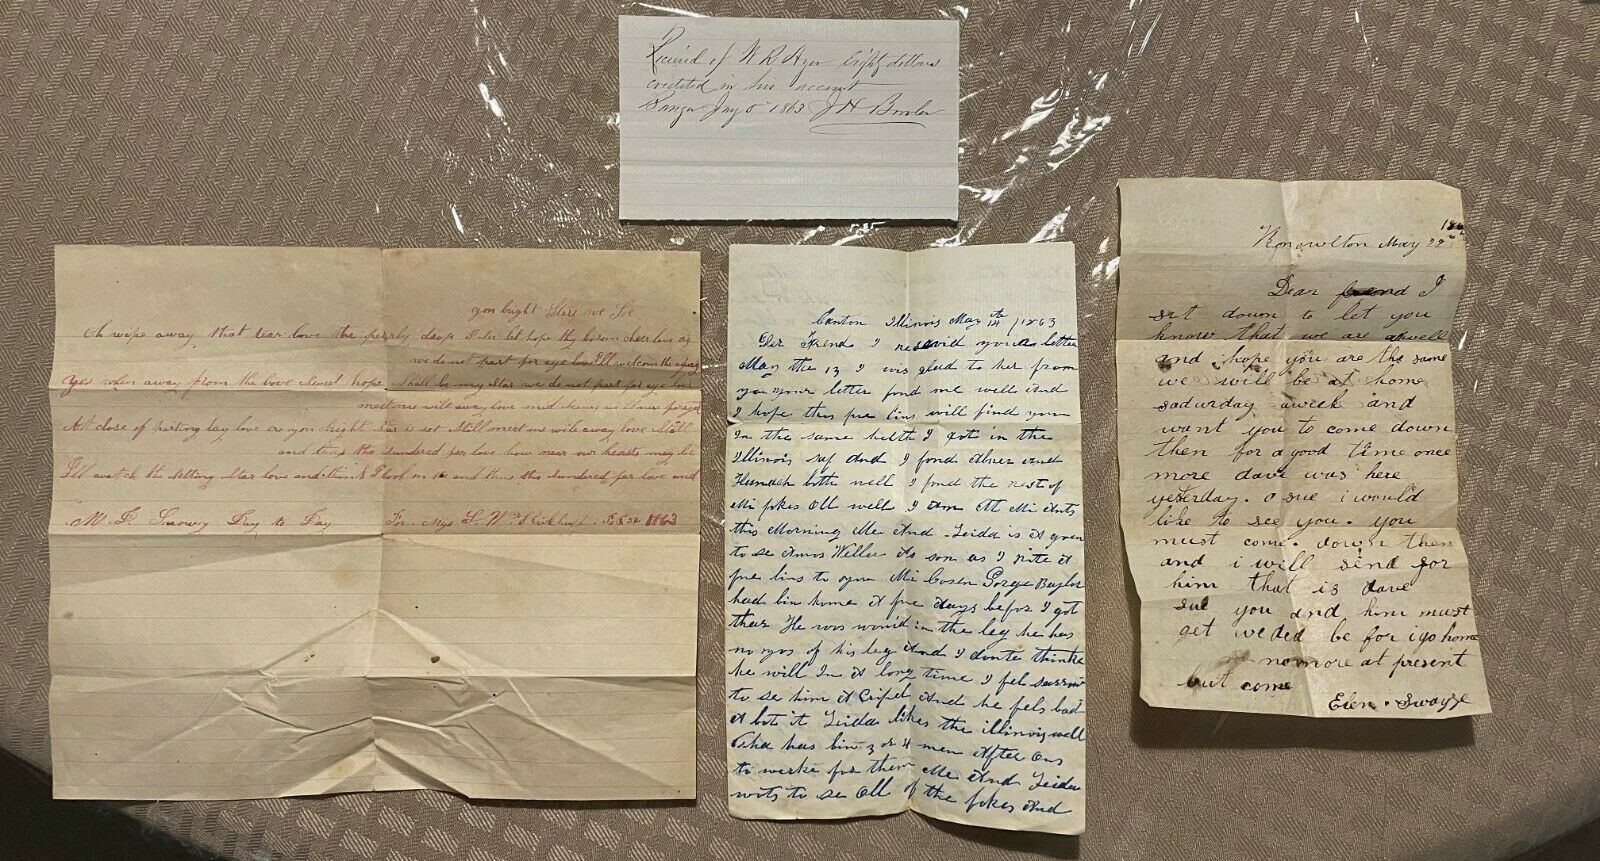 Received of W R Ayer Eight dollars
credited in his account
Bangor 1863 J H Bowler
yon bright Stars we See
Oh wipe away that tear love the pearly drop I see let hope thy bosom cheer love
we do not part for aye love I'll welcome
yes when away from the love sweet hope Shall be my Star we do not part for aye love
meet me will away love and
At close of parting day love ere yon bright Star is set Still meet me will away love
and thus tho Sundered far love how near our hearts may be
I'll watch the Setting Star love and think I look on and thus tho Sundered far love and
M. D. Snowy Day to Day For Mys L. W. 1863
Canton Illinois May 14th / 1863
Der Frend I reseivid your letter
May the 13 I was glad to her from
you your letter fond me well And
I hope thes fue lins will find you
In the same helth I got in the
Illinois saf And I fond Abner and
Hannah both well I fond the rest of
Mi fokes All well I am At Mi Ants
this Morning Me And Lidda is A goen
to se Amos Willer As son as I rite A
fue lins to you Mi Cosen Gorge Baylor
had bin home A fue days befor I got
thar He was wound in the leg he has
no yos of his leg And I donte thinke
he will In A long time I fel sarrow
to se him A Cripel And he fels bad
A bot it Lidda likes the illinois well
Tha has bin 3 or 4 men After ous
to worke for them Me And Lidda
wots to se All of the fokes And
Knowlton May 22
Dear frend I
set down to let you
know that we are awell
and hope you are the same
we will be at home
sadurday aweek and
want you to come down
then for a good time once
more dave was here
yesterday. o sue i would
like to see you. you
must come. down then
and i will send for
him that is dave
sue you and him must
get weded be for i go home
no more at present
but come
Elen. Swayze